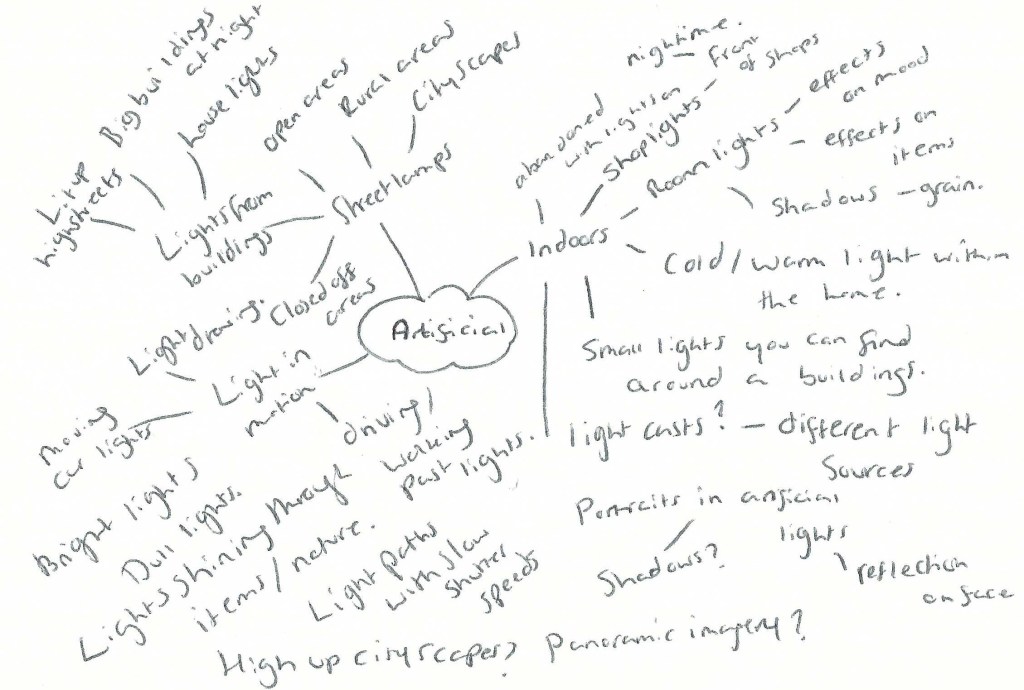 Artificial
Streetlamps
open areas
Rural areas
City scapes
Closed off
areas
Lights from
buildings
Lit up
highstreets
Big buildings
at night
house lights
Indoors
abandoned
with lights on
Shoplights
front
of shops
nightime.
Room lights
effects
on mood
effects on
items
Shadows - grain.
Cold/warm light within
the home.
Small lights you can find
around a buildings.
light casts? - different light
Sources
Light in
motion
Light
drawing.
Moving
car lights
driving/
walking
past lights.
Bright lights
Dull lights.
Lights shining through
items/nature.
Light paths
with slow
shutter
speeds
Portraits in artificial
lights
Shadows?
reflection
on face
High up city scapes?
Panoramic imagery?